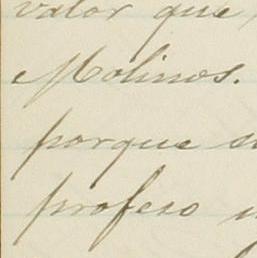 valor que
Molinos.
porque
profeso